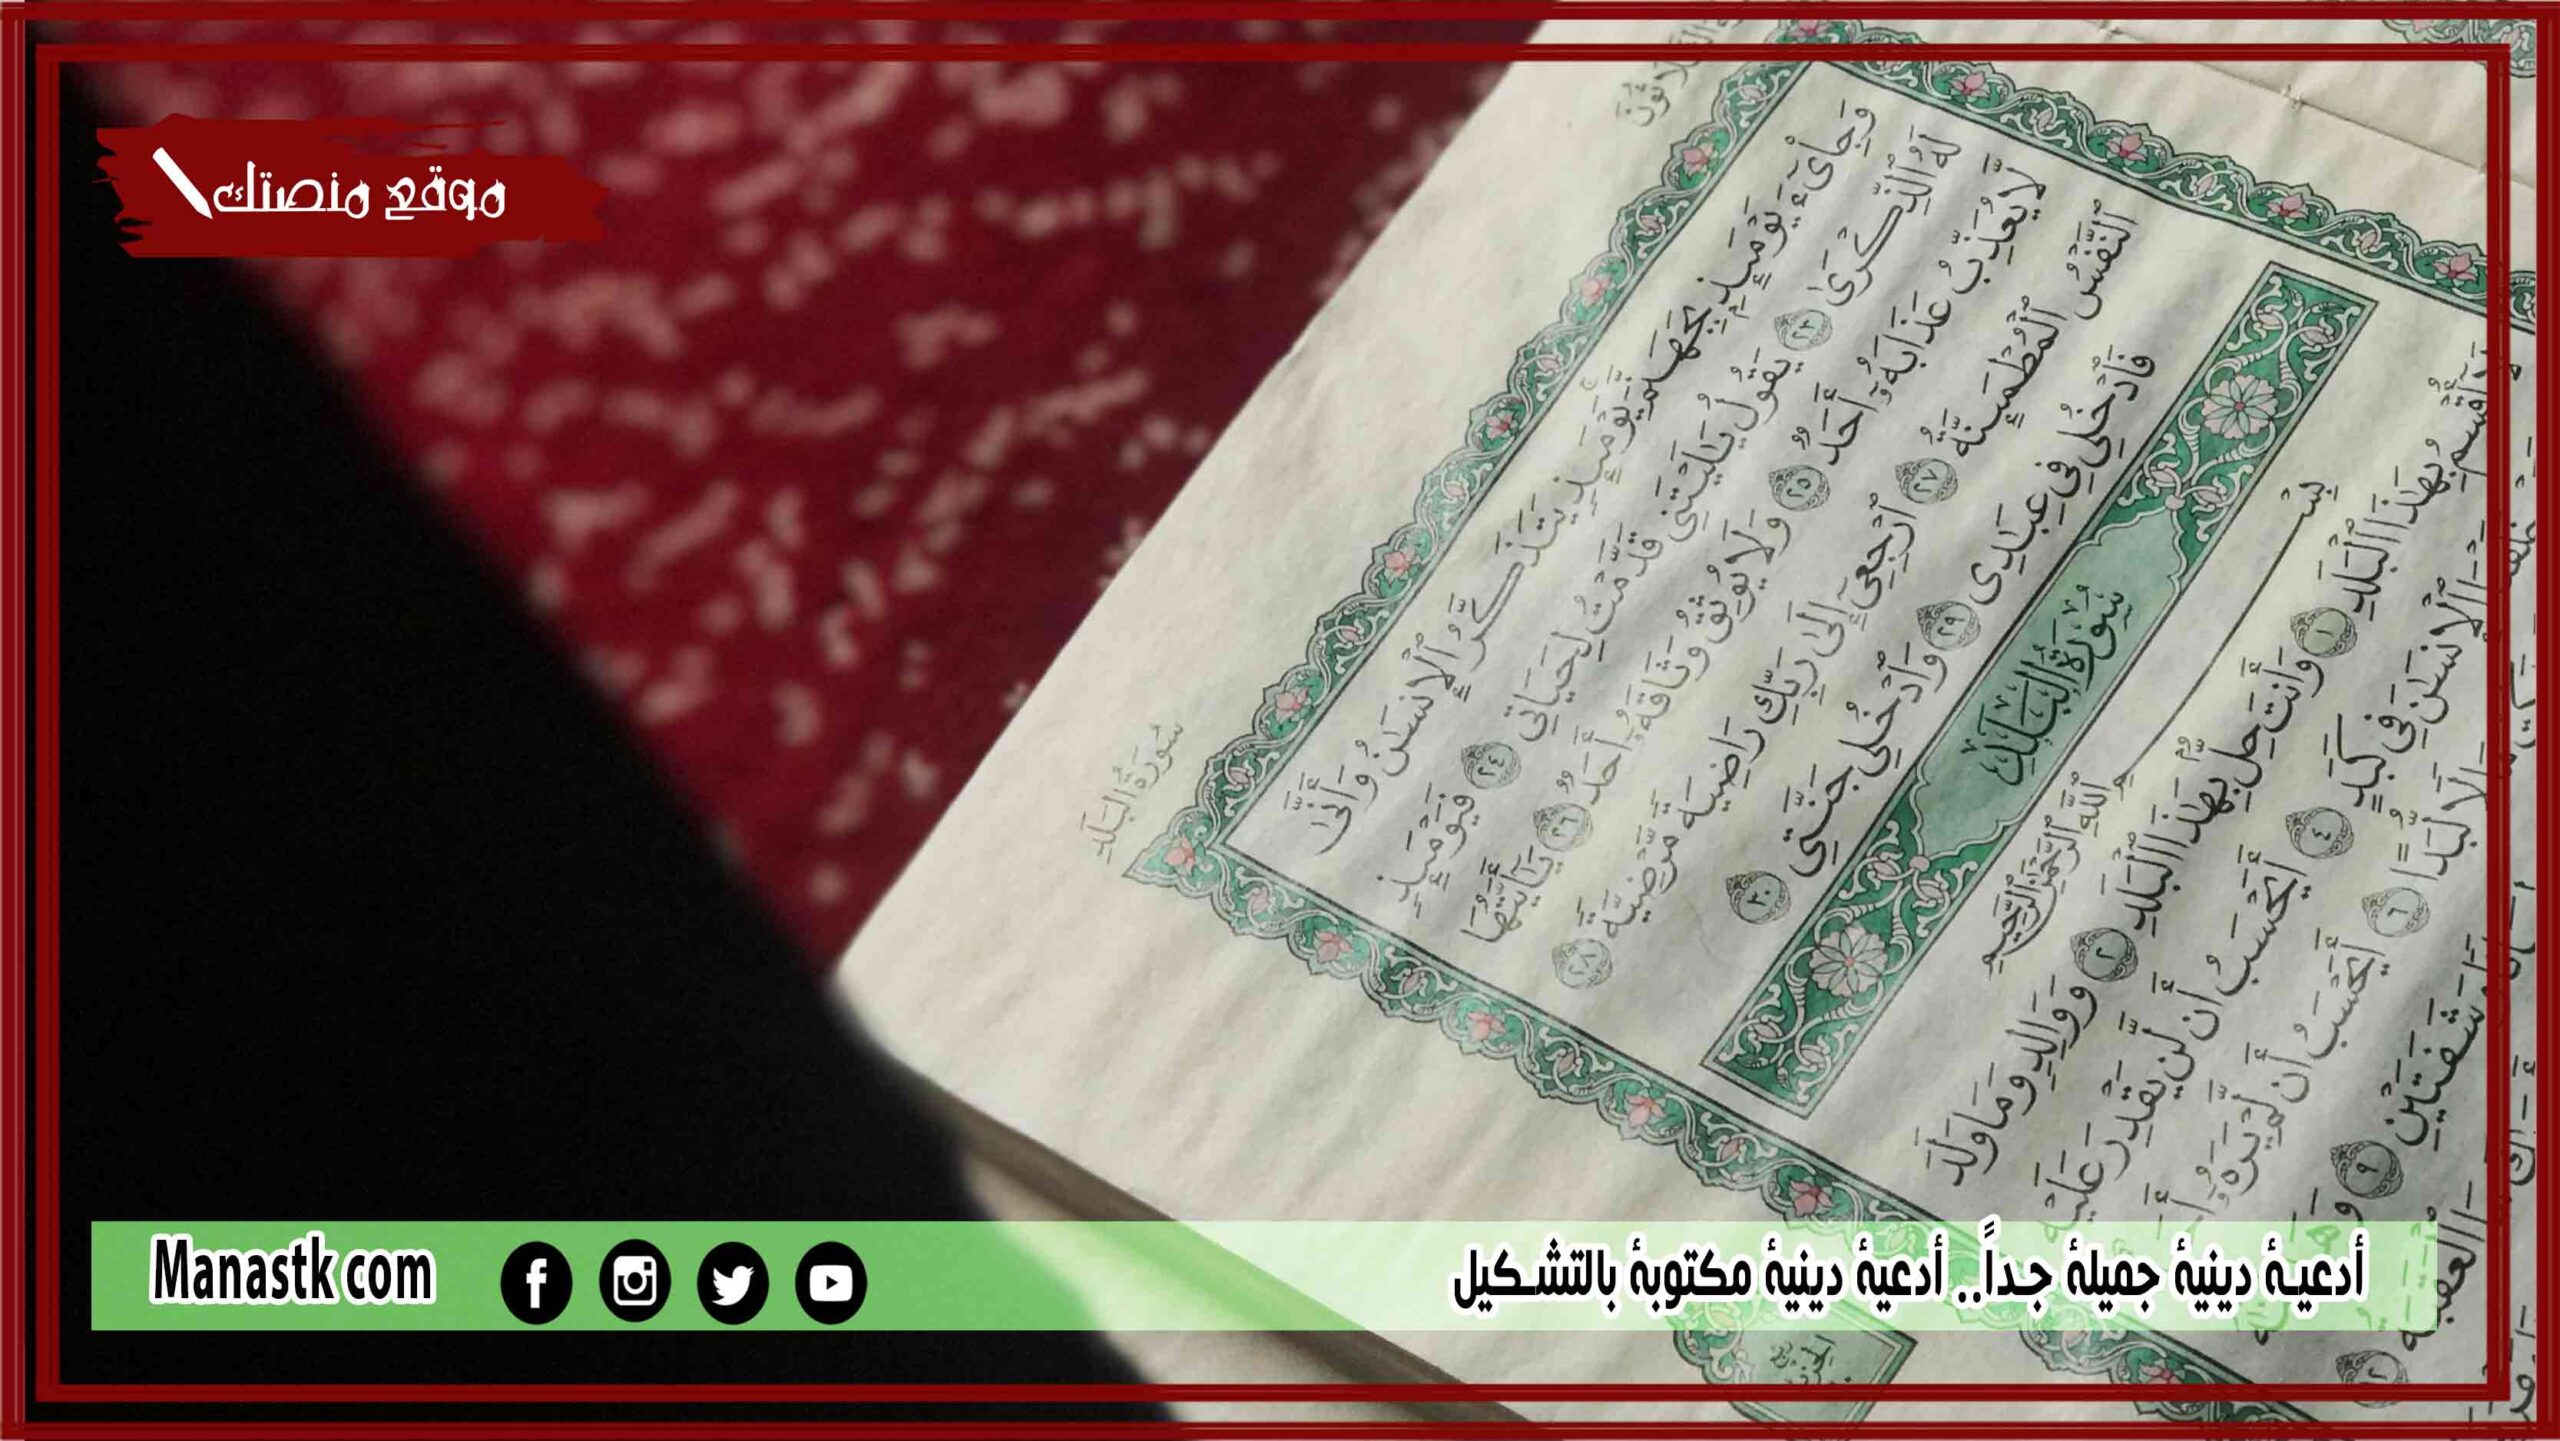 موقع منصتك
وَجِاْىٓءَ يَوْمَئِذٍۭ بِجَهَنَّمَ ۚ يَوْمَئِذٍ يَتَذَكَّرُ ٱلْإِنسَٰنُ وَأَنَّىٰ
لَهُ ٱلذِّكْرَىٰ ٢٣ يَقُولُ يَٰلَيْتَنِى قَدَّمْتُ لِحَيَاتِى ٢٤ فَيَوْمَئِذٍ
لَّا يُعَذِّبُ عَذَابَهُۥٓ أَحَدٌ ٢٥ وَلَا يُوثِقُ وَثَاقَهُۥٓ أَحَدٌ ٢٦ يَٰٓأَيَّتُهَا
ٱلنَّفْسُ ٱلْمُطْمَئِنَّةُ ٢٧ ٱرْجِعِىٓ إِلَىٰ رَبِّكِ رَاضِيَةً مَّرْضِيَّةً ٢٨
فَٱدْخُلِى فِى عِبَٰدِى ٢٩ وَٱدْخُلِى جَنَّتِى ٣٠
سُورَةُ الْبَلَدِ
سُورَةُ الْبَلَدِ
بِسْمِ ٱللَّهِ ٱلرَّحْمَٰنِ ٱلرَّحِيمِ
أُقْسِمُ بِهَٰذَا ٱلْبَلَدِ ١ وَأَنتَ حِلٌّۢ بِهَٰذَا ٱلْبَلَدِ ٢ وَوَالِدٍ وَمَا وَلَدَ
ٱلْإِنسَٰنَ فِى كَبَدٍ ٤ أَيَحْسَبُ أَن لَّن يَقْدِرَ عَلَيْهِ
مَالًا لُّبَدًا ٦ أَيَحْسَبُ أَن لَّمْ يَرَهُۥٓ
وَشَفَتَيْنِ ٩
ٱلْعَقَبَةُ ١٢
أدعية دينية جميلة جداً.. أدعية دينية مكتوبة بالتشكيل
Manastk com